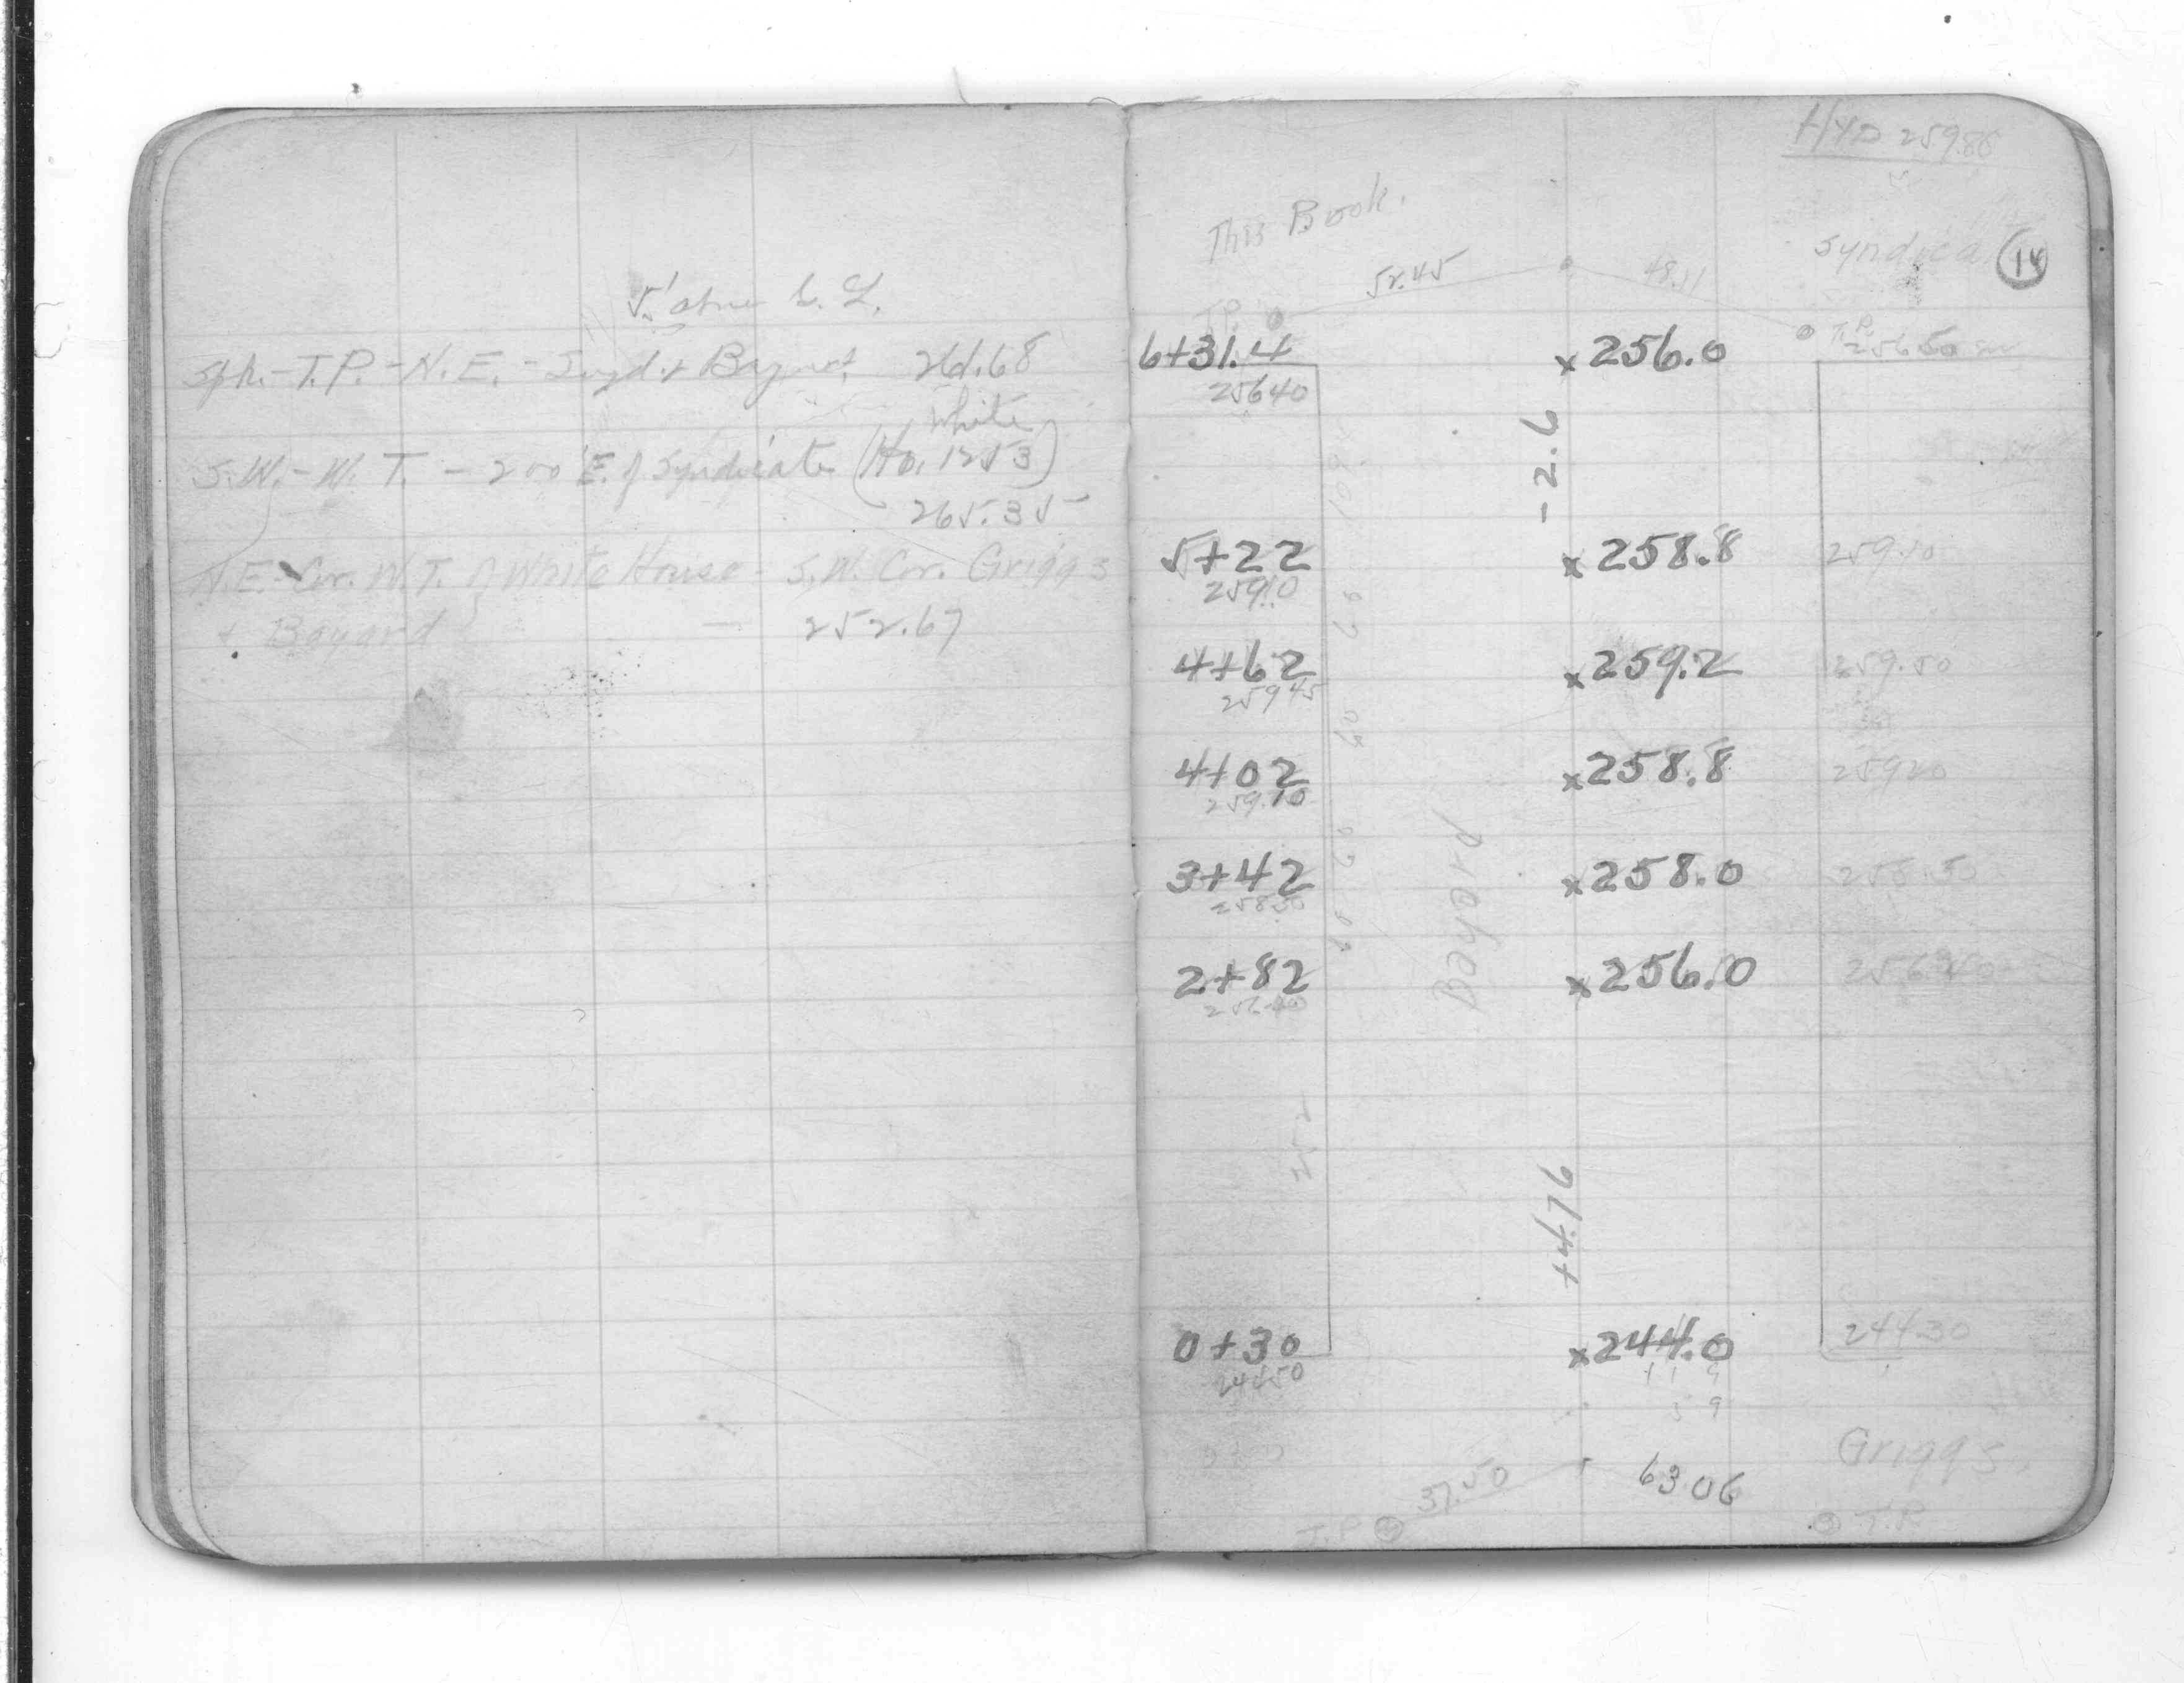 5.' above C. L.
Spk. - T.P. - N.E. - Synd. +
White
S.W. - W. T. - 200' E. of Syndicate (Ho. 1253)
265.35
N.E. Cor. W.T. of White House - S.W. Cor. Griggs
+ Bayard - 252.67
HYD 259.88
This Book.
Syndica
14
52.45
48.51
T.P.
T.P.
6+31.4
x 256.0
256.50
256 40
-2.6
5+22
x 258.8
259.10
259.10
4+62
x 259.2
259.50
259 45
4+02
x 258.8
259 20
259.10
3+42
x 258.0
258.50
258 50
Bayard
2+82
x 256.0
252
+4.76
0+30
x 244.0
244.30
244 50
Griggs
37.50
63.06
T.P.
T.P.